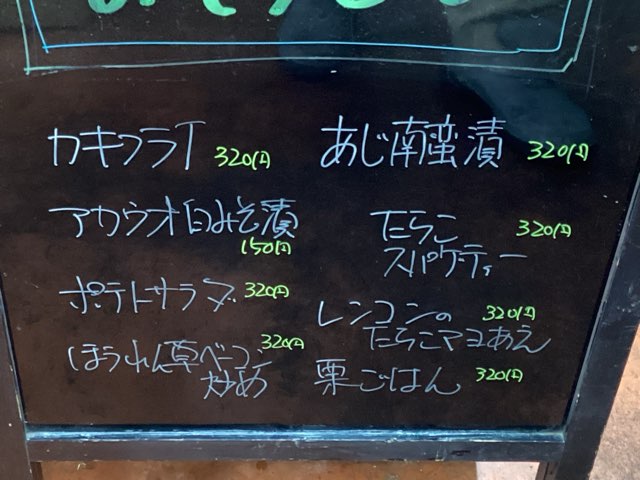 カキフライ 320円
アカウオ白みそ漬
150円
ポテトサラダ 320円
ほうれん草ベーコン 320円
炒め
あじ南蛮漬 320円
たらこ 320円
スパゲティー
レンコンの 320円
たらこマヨあえ
栗ごはん 320円